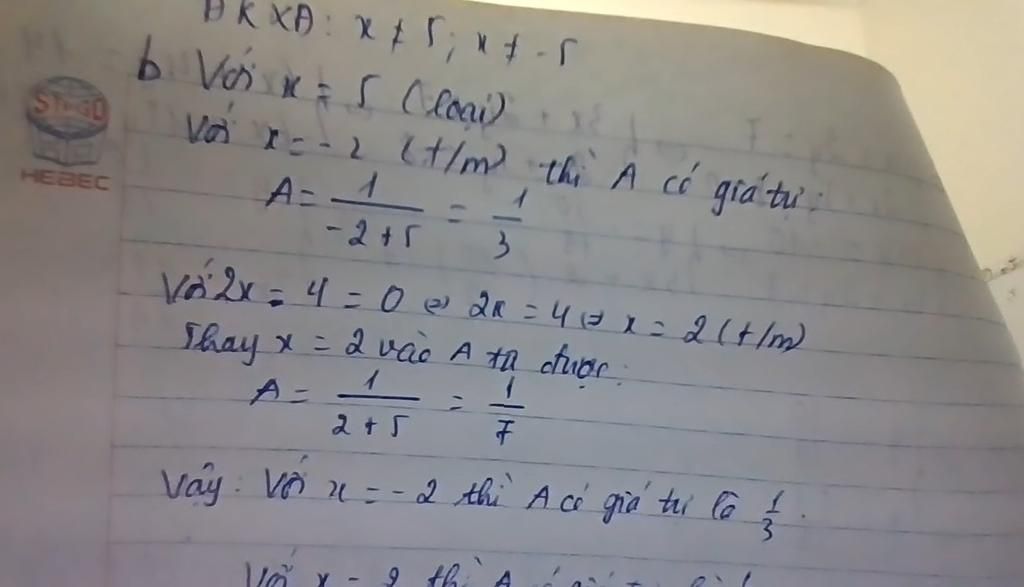 ĐKXĐ: x ≠ 5; x ≠ -5
b. Với x = 5 (loại)
Với x = -2 (t/m) thì A có giá trị:
A = 1/(-2+5) = 1/3
Với 2x = 4 = 0 ⇔ 2x = 4 ⇔ x = 2 (t/m)
Thay x = 2 vào A ta được:
A = 1/(2+5) = 1/7
Vậy: Với x = -2 thì A có giá trị là 1/3.
Với x = 2 thì A
STIGO
HEBEC